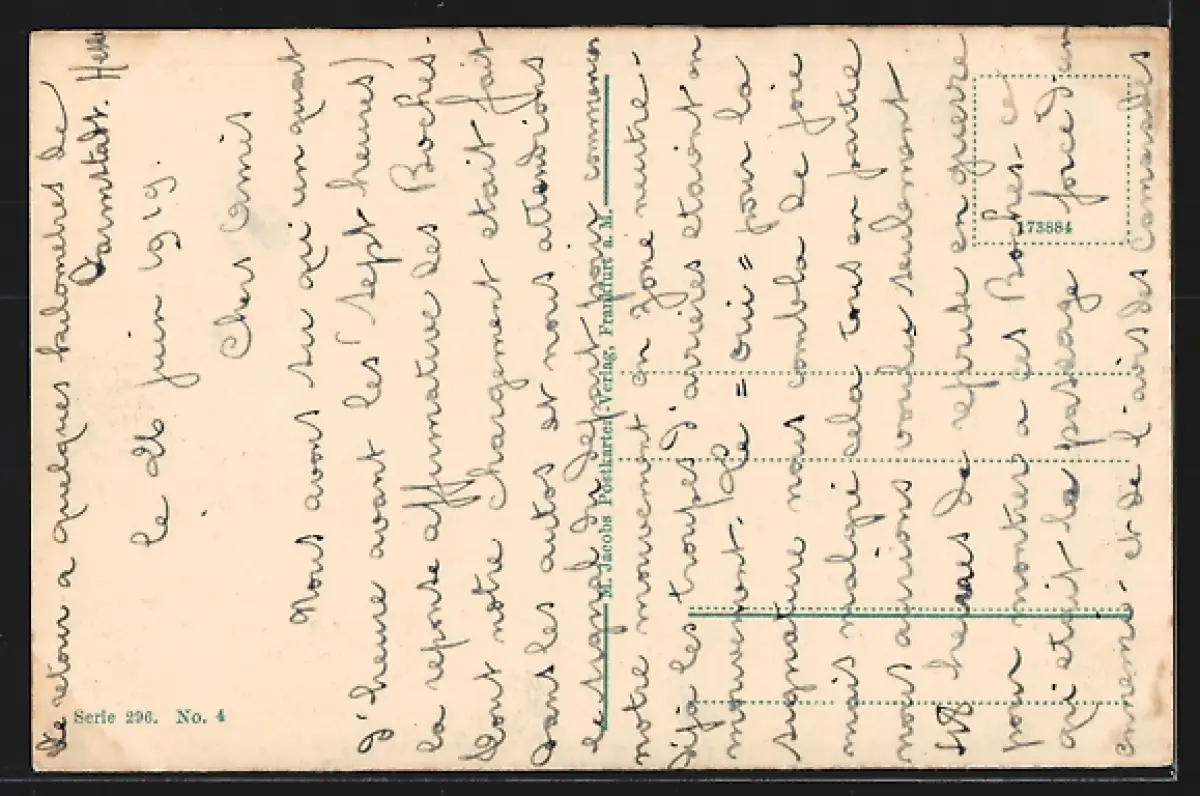 De retour a quelques kilometres de
Darmstadt. Hesse
le 26 juin 1919.
Chers Amis
Nous avons su qui un quart
d'heure avant les (sept heures)
la reponse affirmative des Boches.
Dont notre Chargement etait fait
dans les autos et nous attendions
le signal du depart pour commencer
notre mouvement en Zone neutre.
déja les troupes d'arrières etaient en
mouvement. Le = oui = pour la
signature nous combla de joie
mais malgré cela tous en partie
nous aurions voulu seulement
48 heures de reprise en guerre
pour montrer a ces Boches. ce
qui etait le passage forcé d'un
ennemi. et de l'avis des camarades
M. Jacobs Postkarten-Verlag, Frankfurt a. M.
Serie 296. No. 4
173884